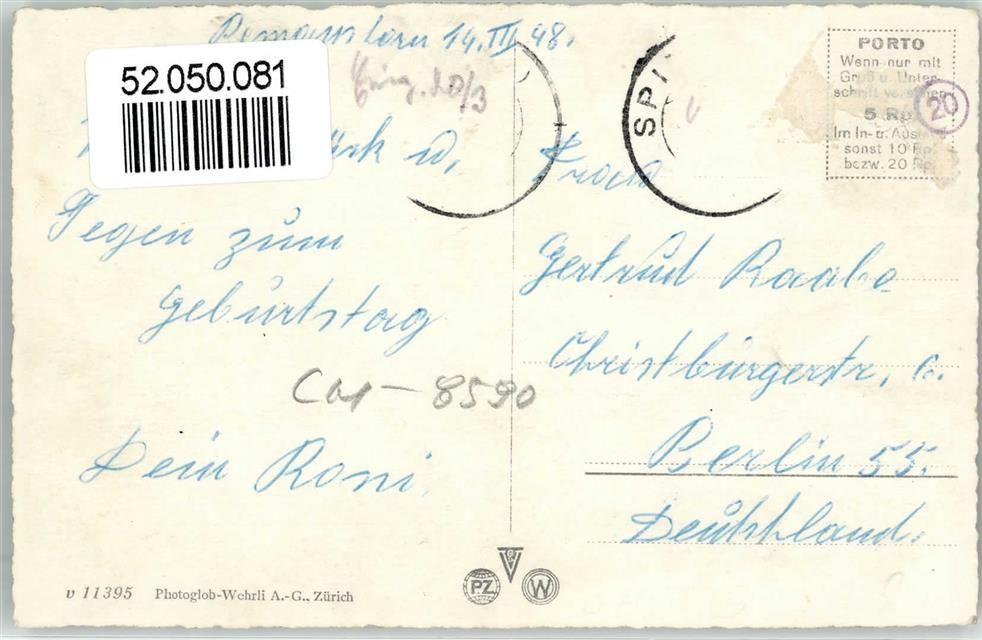 Romanshorn 14. III 48.
52.050.081
20/3
u.
Segen zum
Geburtstag
Cart-8590
Dein Roni.
SPI
PORTO
Wenn nur mit
Gruß u. Unter-
schrift versehen
5 Rp.
Im In- u. Ausl.
sonst 10 Rp.
bezw. 20 Rp.
20
Frau
Gertrud Raabe
Christburgerstr. 6.
Berlin 55.
Deutschland.
PZ
W
v 11395 Photoglob-Wehrli A.-G., Zürich